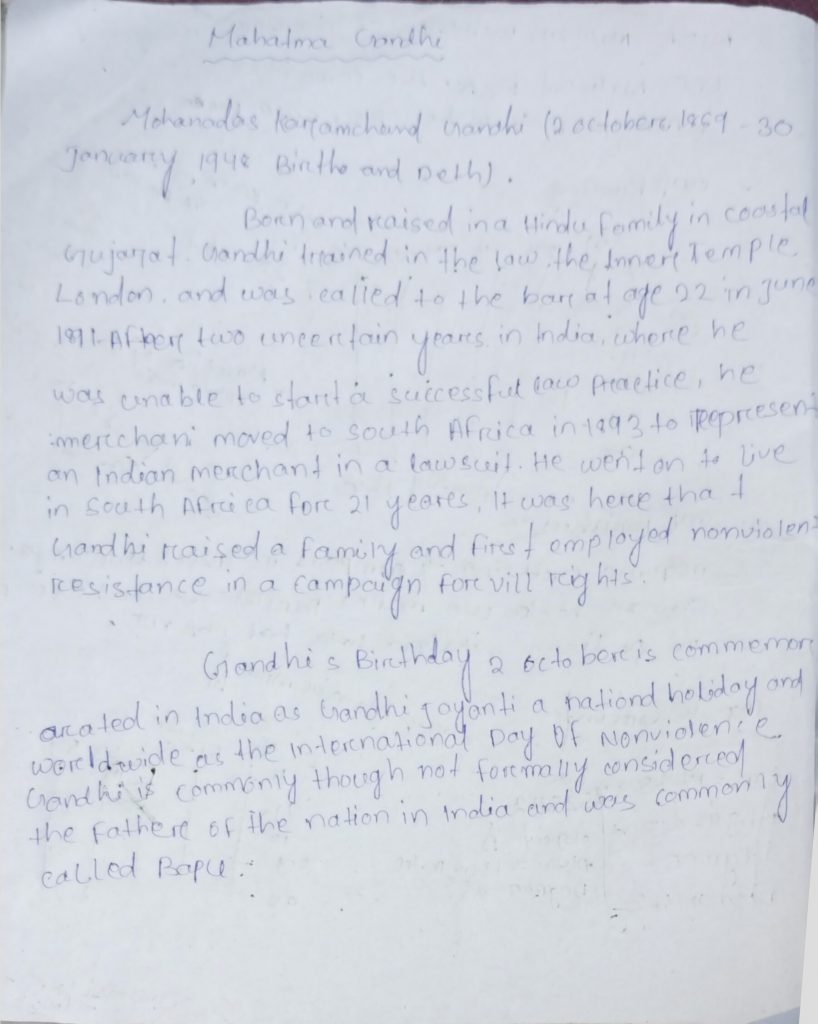 Mahatma Gandhi
Mohanadas Karamchand Gandhi (2 octobere 1869 - 30
January 1948 Birthe and Deth).
Born and raised in a Hindu family in coastal
Gujarat. Gandhi trained in the law, the Inner Temple,
London, and was called to the bar at age 22 in June
1891. After two uncertain years in India, where he
was unable to start a successful law Practice, he
merchant moved to south Africa in 1893 to Represent
an Indian merchant in a lawsuit. He went on to live
in south Africa for 21 yeares, It was here that
Gandhi raised a family and first employed nonviolent
resistance in a campaign for vill rights.
Gandhi s Birthday 2 octobere is commemor
arated in India as Gandhi jayanti a nationd holiday and
world-wide as the international Day Of Nonviolence.
Gandhi is commonly though not formally considered
the Fathere of the nation in India and was commonly
called Bapu.